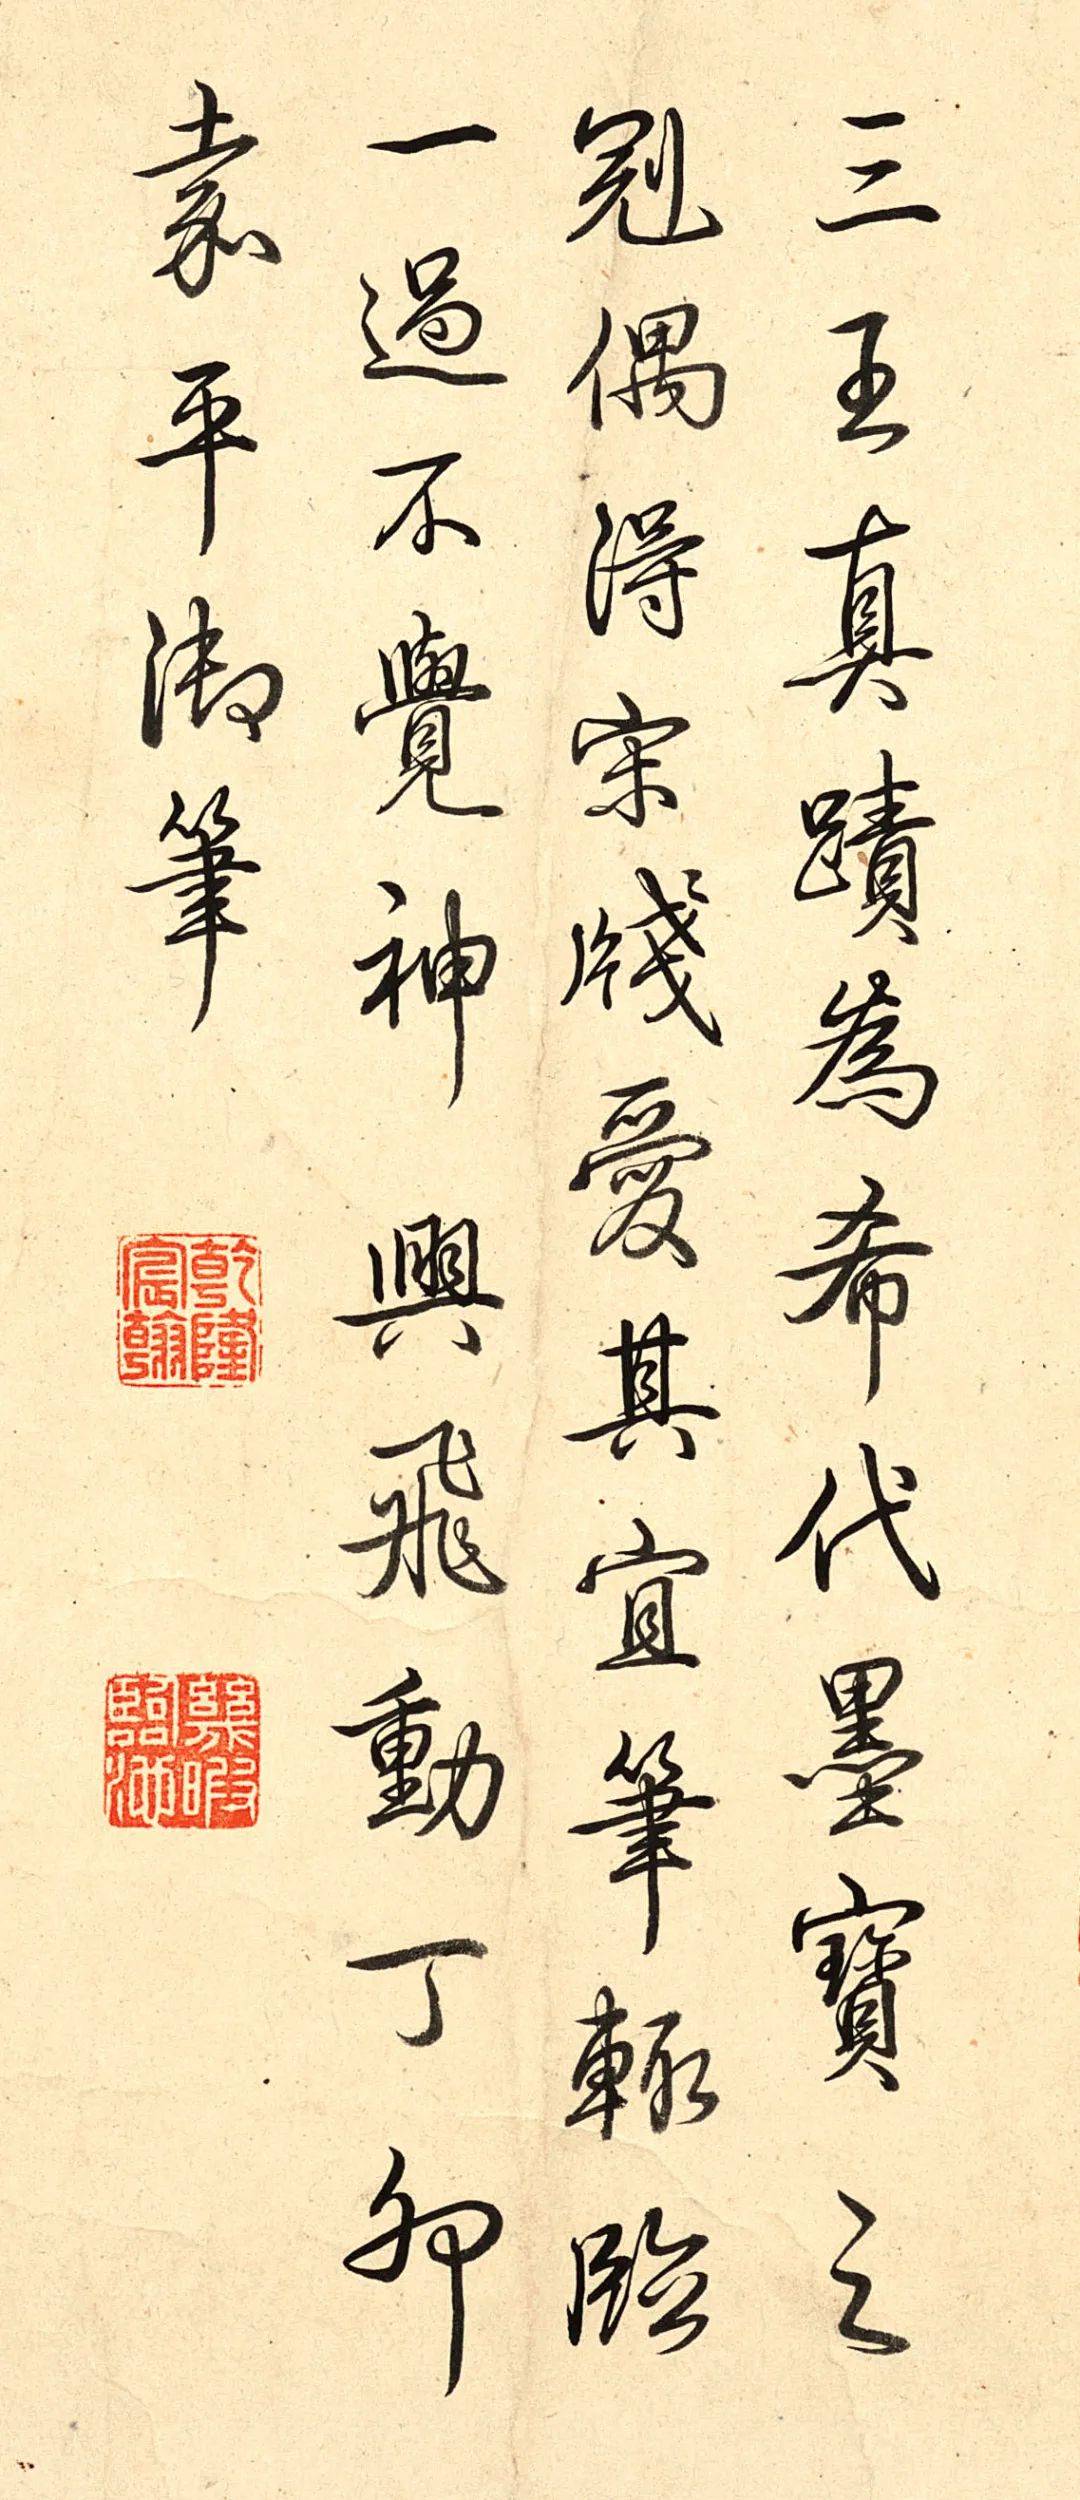 三王真蹟為希代墨寶之
冠偶得宋牋愛其宜筆輒臨
一過不覺神興飛動丁卯
嘉平御筆
乾隆
宸翰
幾暇
臨池